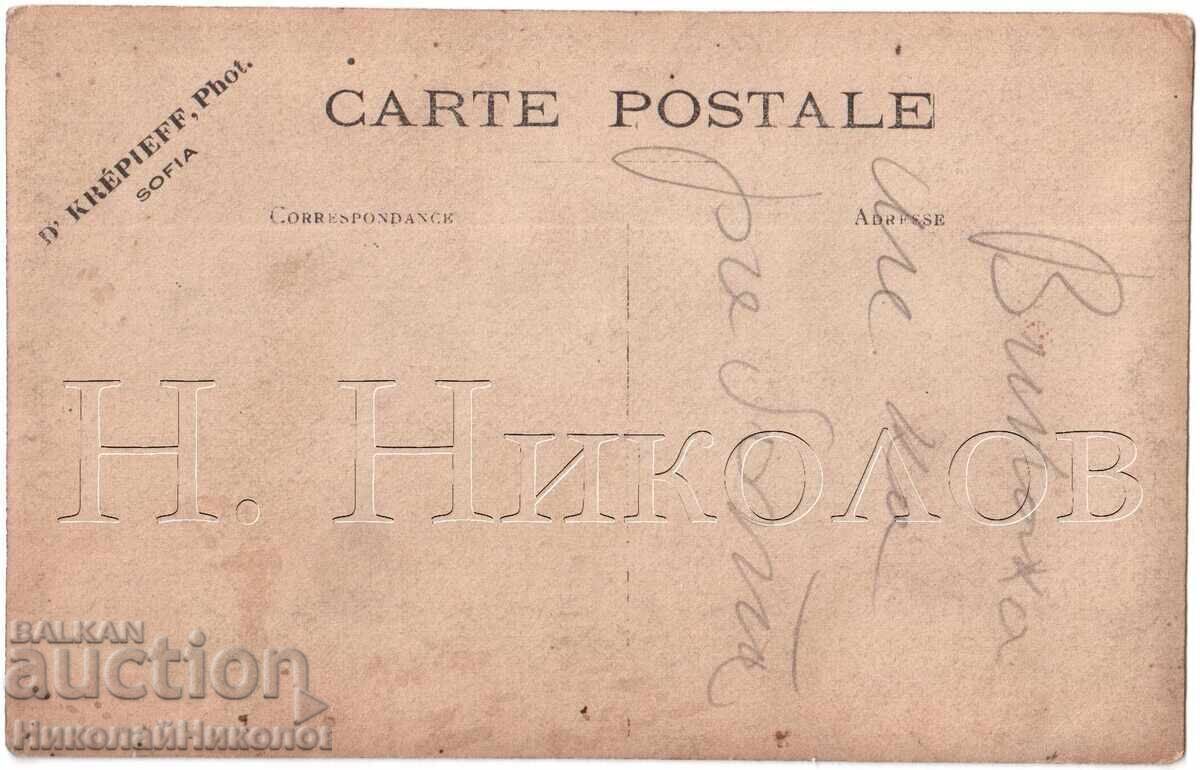 D' KRÉPIEFF, Phot.
SOFIA
CARTE POSTALE
CORRESPONDANCE
ADRESSE
на
Н. Николов
BALKAN
auction
НиколайНиколов